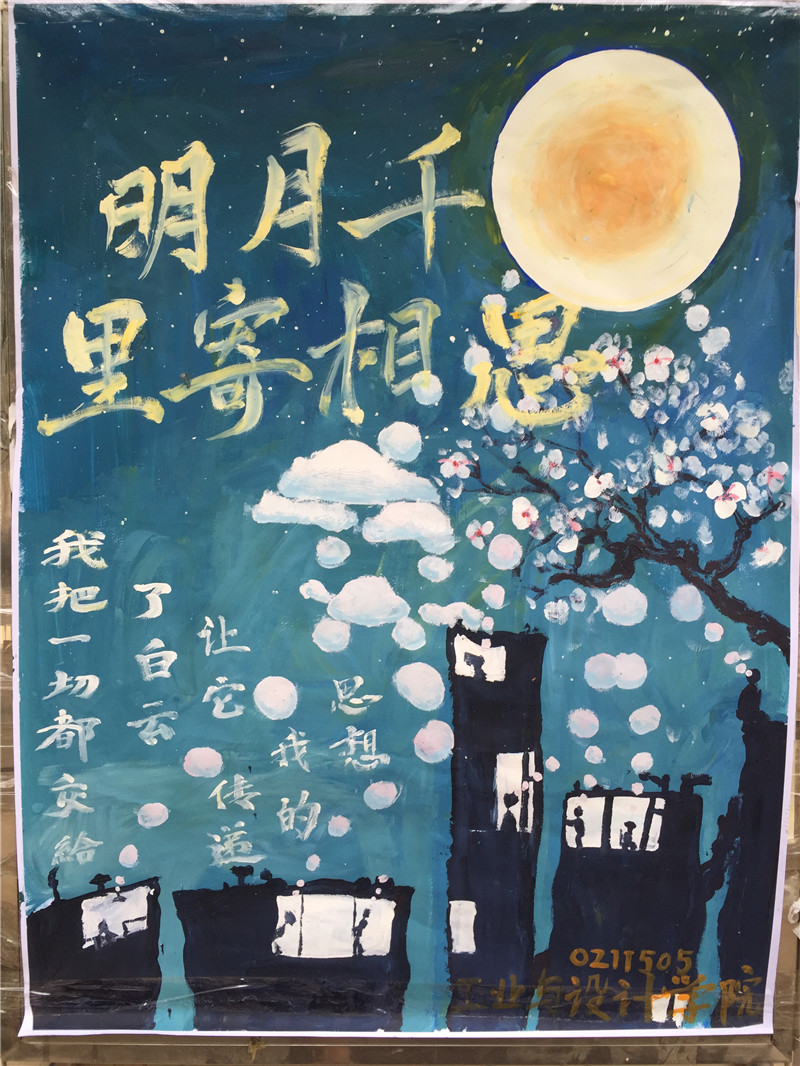 明月千
里寄相思
我把一切都交給
了白云
让它传递
我的
思想
0211505
工业与设计学院